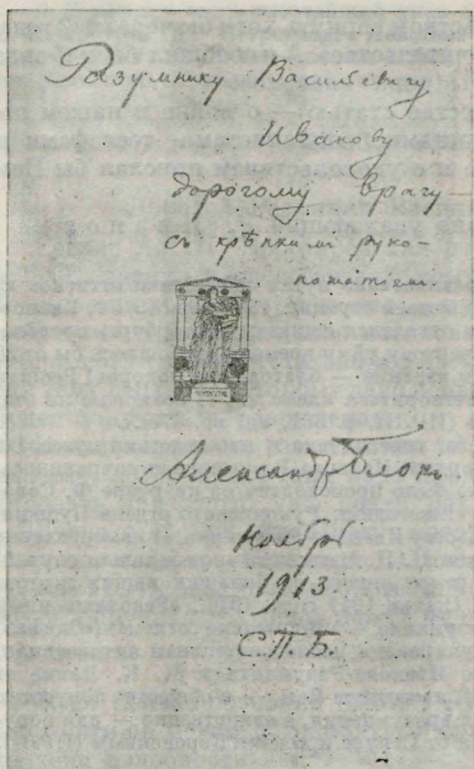 Разумнику Васильевичу
Иванову
дорогому врагу —
съ крѣпкимъ руко-
пожатіем.
Александръ Блокъ.
Ноябрь
1913.
С.П.Б.